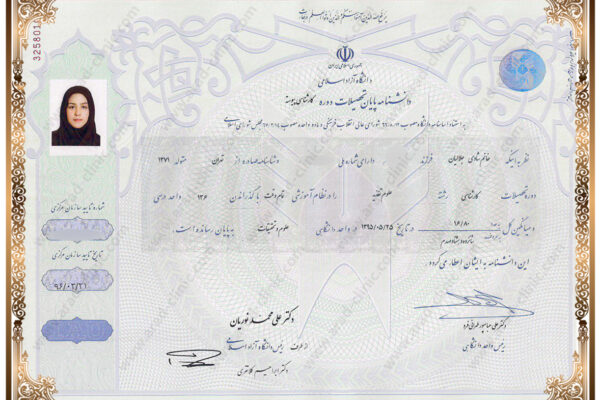 325801
جمهوری اسلامی ایران
دانشگاه آزاد اسلامی
دانشنامه پایان تحصیلات دوره کارشناسی پیوسته
نظر به اینکه خانم شادی جلالیان فرزند دارای شماره ملی و شناسنامه صادره از تهران متولد ۱۳۷۱
دوره تحصیلات کارشناسی رشته علوم تغذیه را در نظام آموزشی تمام وقت با گذراندن ۱۳۶ واحد درسی
و میانگین کل ۱۶/۸۰ در تاریخ ۱۳۹۵/۰۵/۲۵ در واحد دانشگاهی علوم و تحقیقات به پایان رسانده است.
این دانشنامه به ایشان اعطا می گردد
شماره تایید سازمان مرکزی
تاریخ تایید سازمان مرکزی
۹۶/۰۳/۲۱
دکتر علی محمد نوریان
رئیس دانشگاه آزاد اسلامی
از طرف
دکتر ابراهیم کلانتری
رئیس واحد دانشگاهی